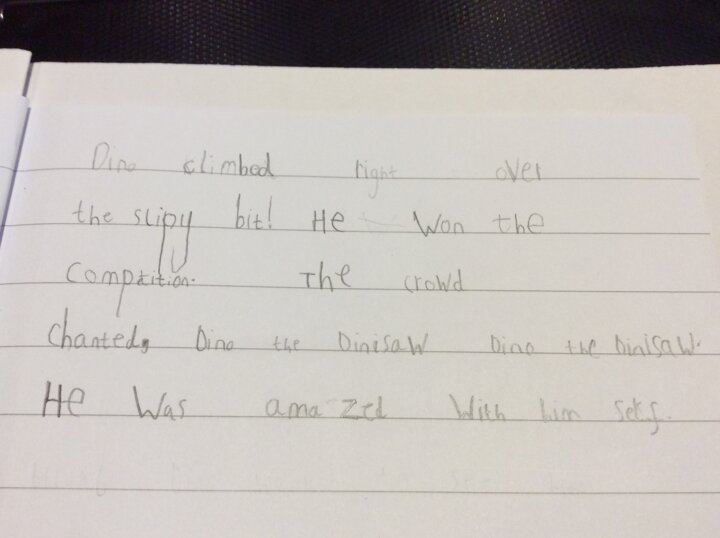 Dino climbed right over
the slipy bit! He Won the
Comptition. The crowd
Chanted, Dino the Dinisaw Dino the Dinisaw.
He Was amazed With him sefs.